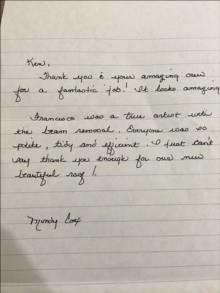 Ken,
Thank you & your amazing crew
for a fantastic job! It looks amazing
Francisco was a true artist with
the beam removal. Everyone was so
polite, tidy and efficient. I just can't
say thank you enough for our new
beautiful roof!
Mindy Cox